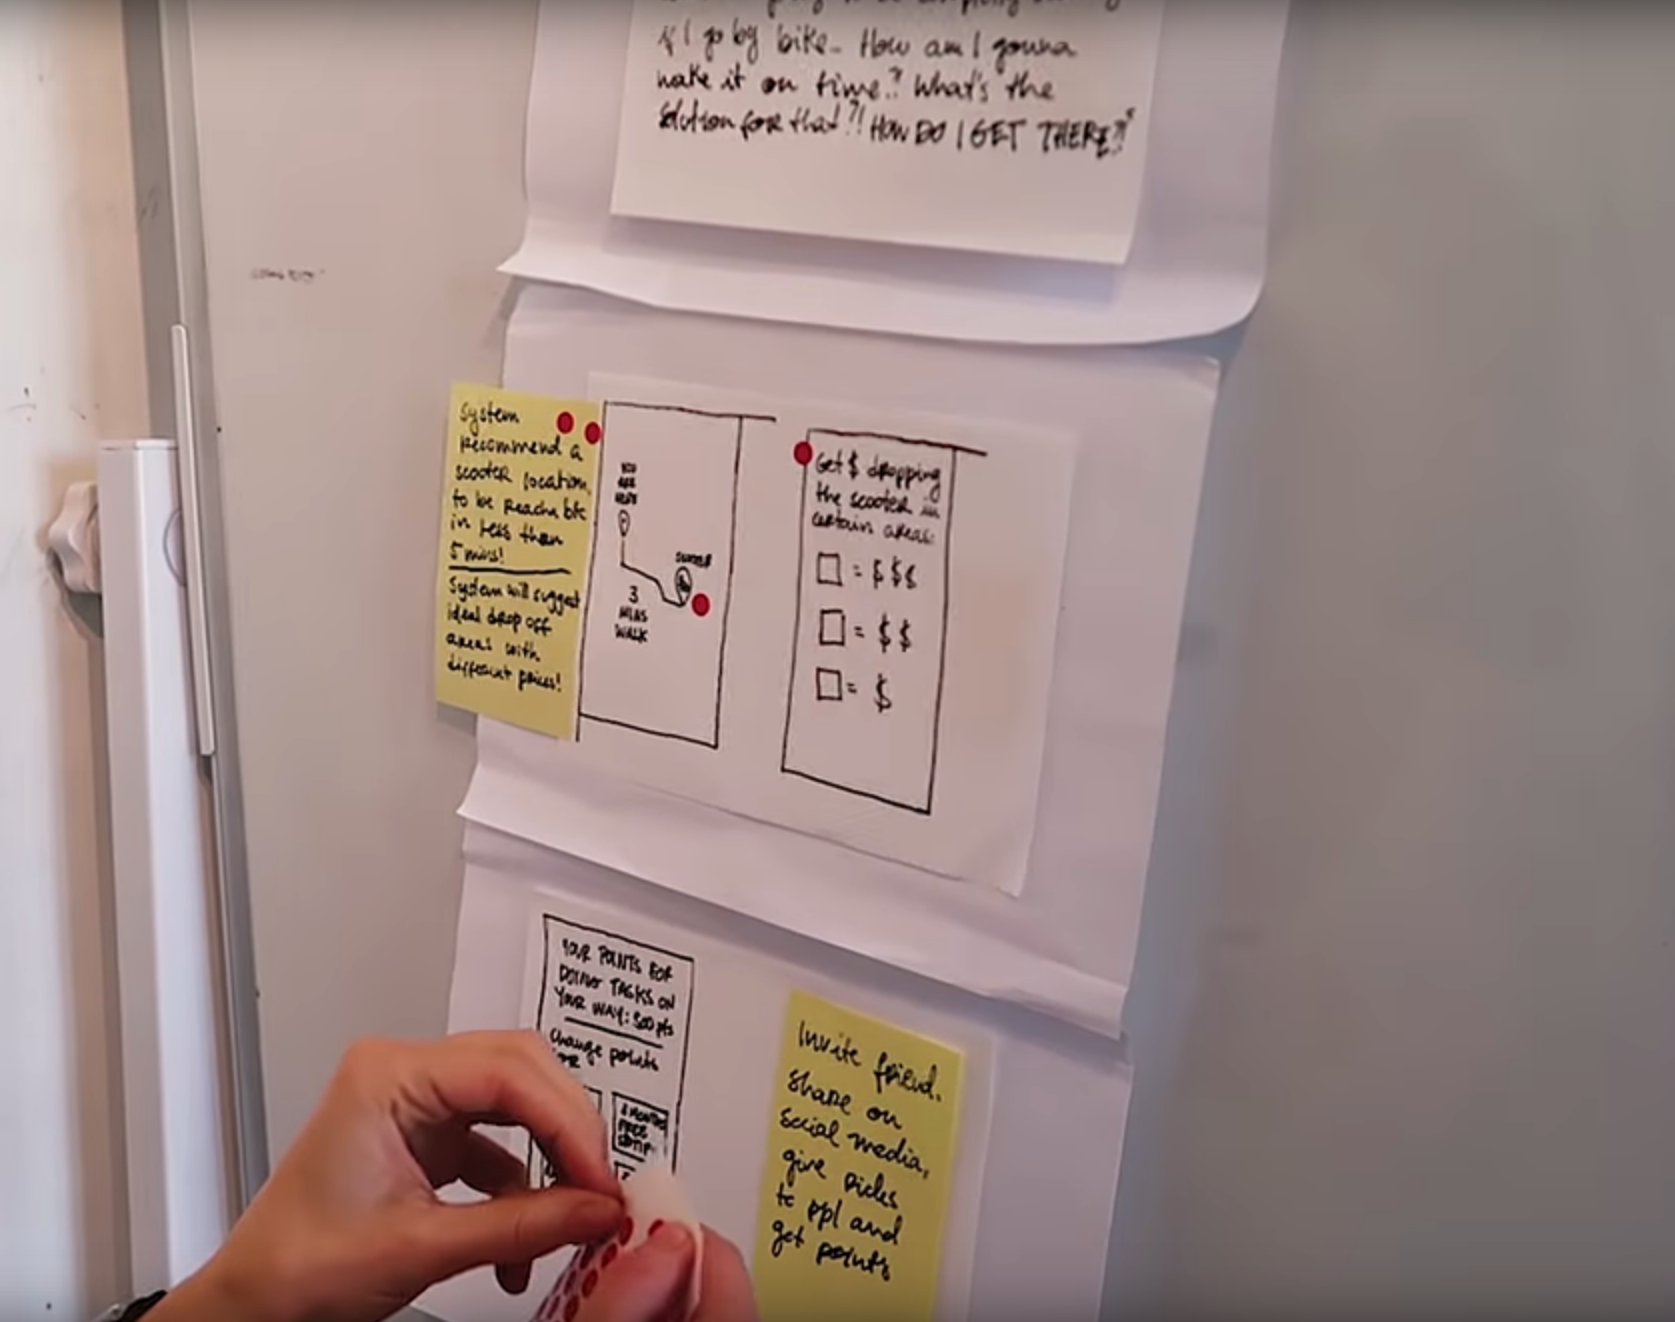 if I go by bike.. How am I gonna
make it on time?! What's the
solution for that?! HOW DO I GET THERE?!"
System
recommend a
scooter location,
to be reachable
in less than
5 mins!
System will suggest
ideal drop off
areas with
different prices!
YOU
ARE
HERE
SCOOTER
3
MINS
WALK
Get $ dropping
the scooter in
certain areas:
= $$$
= $$
= $
YOUR POINTS FOR
DOING TASKS ON
YOUR WAY: 500 pts
Change points
FOR
FREE
Invite friend.
share on
social media,
give rides
to ppl and
get points